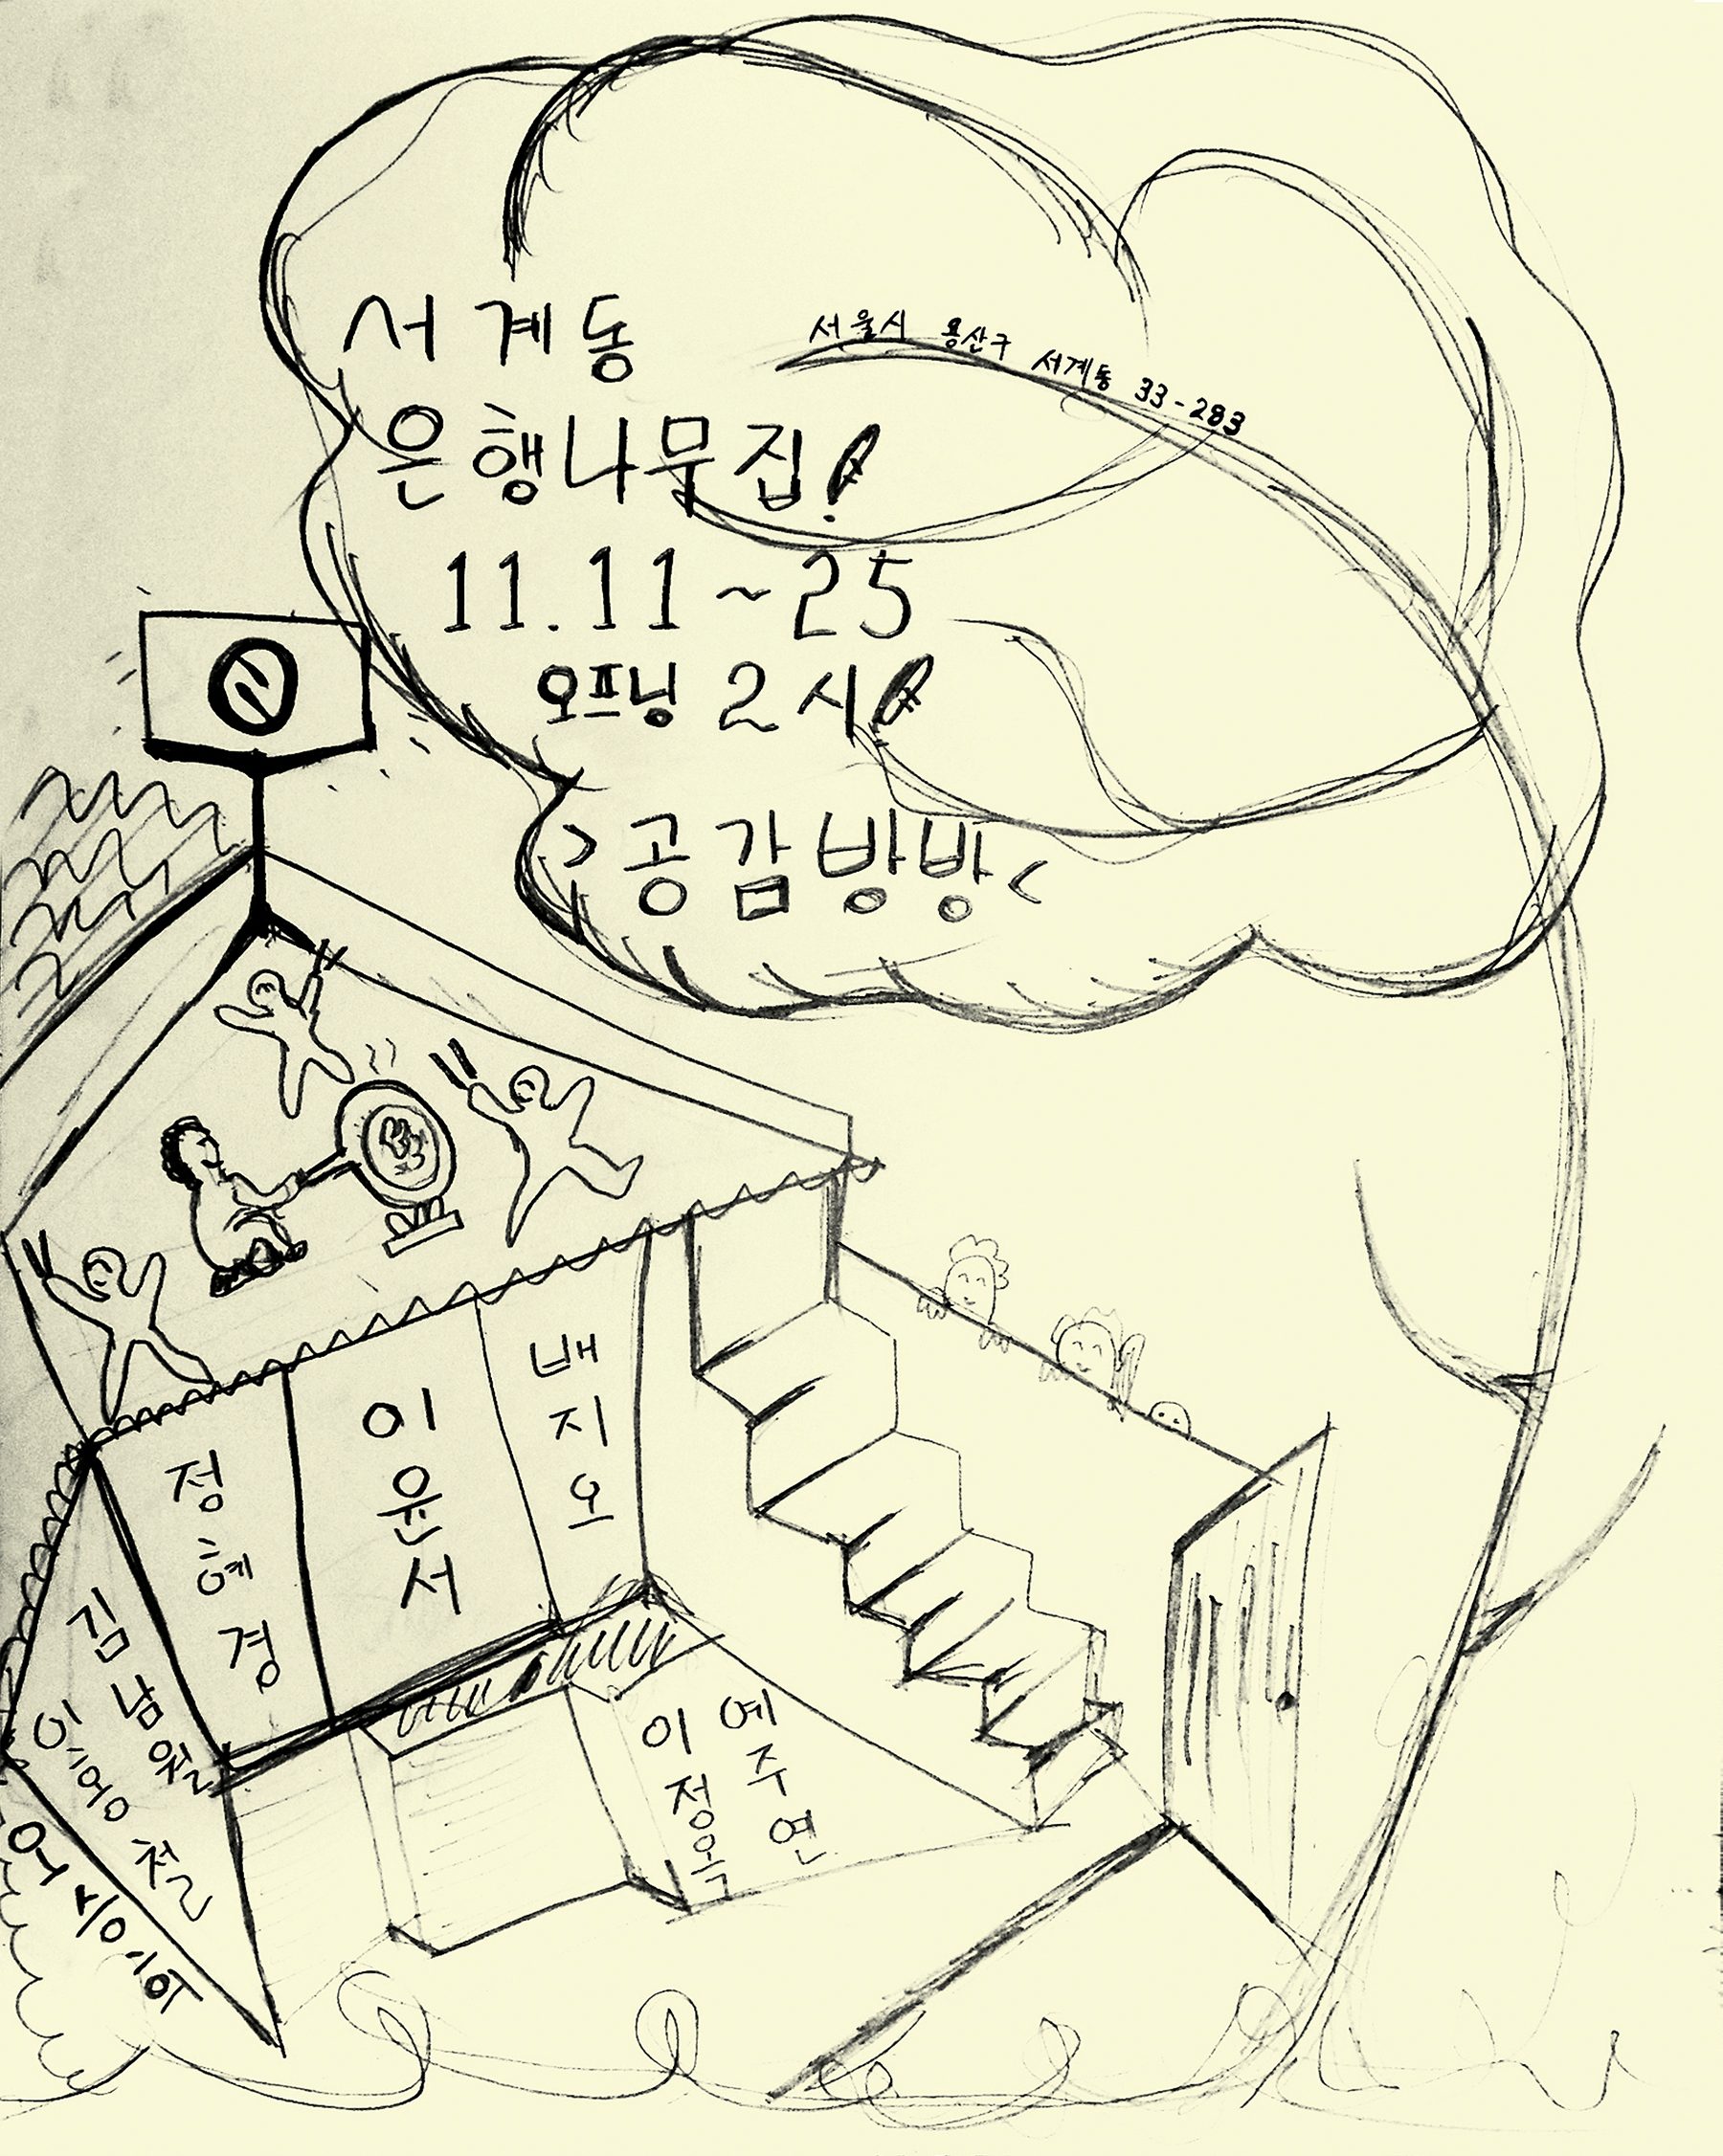 서계동
은행나무집!
서울시 용산구 서계동 33-283
11.11~25
오프닝 2시!
>공감방방<
배지오
이윤서
정혜경
김남월
이웅철
예주연
이정옥